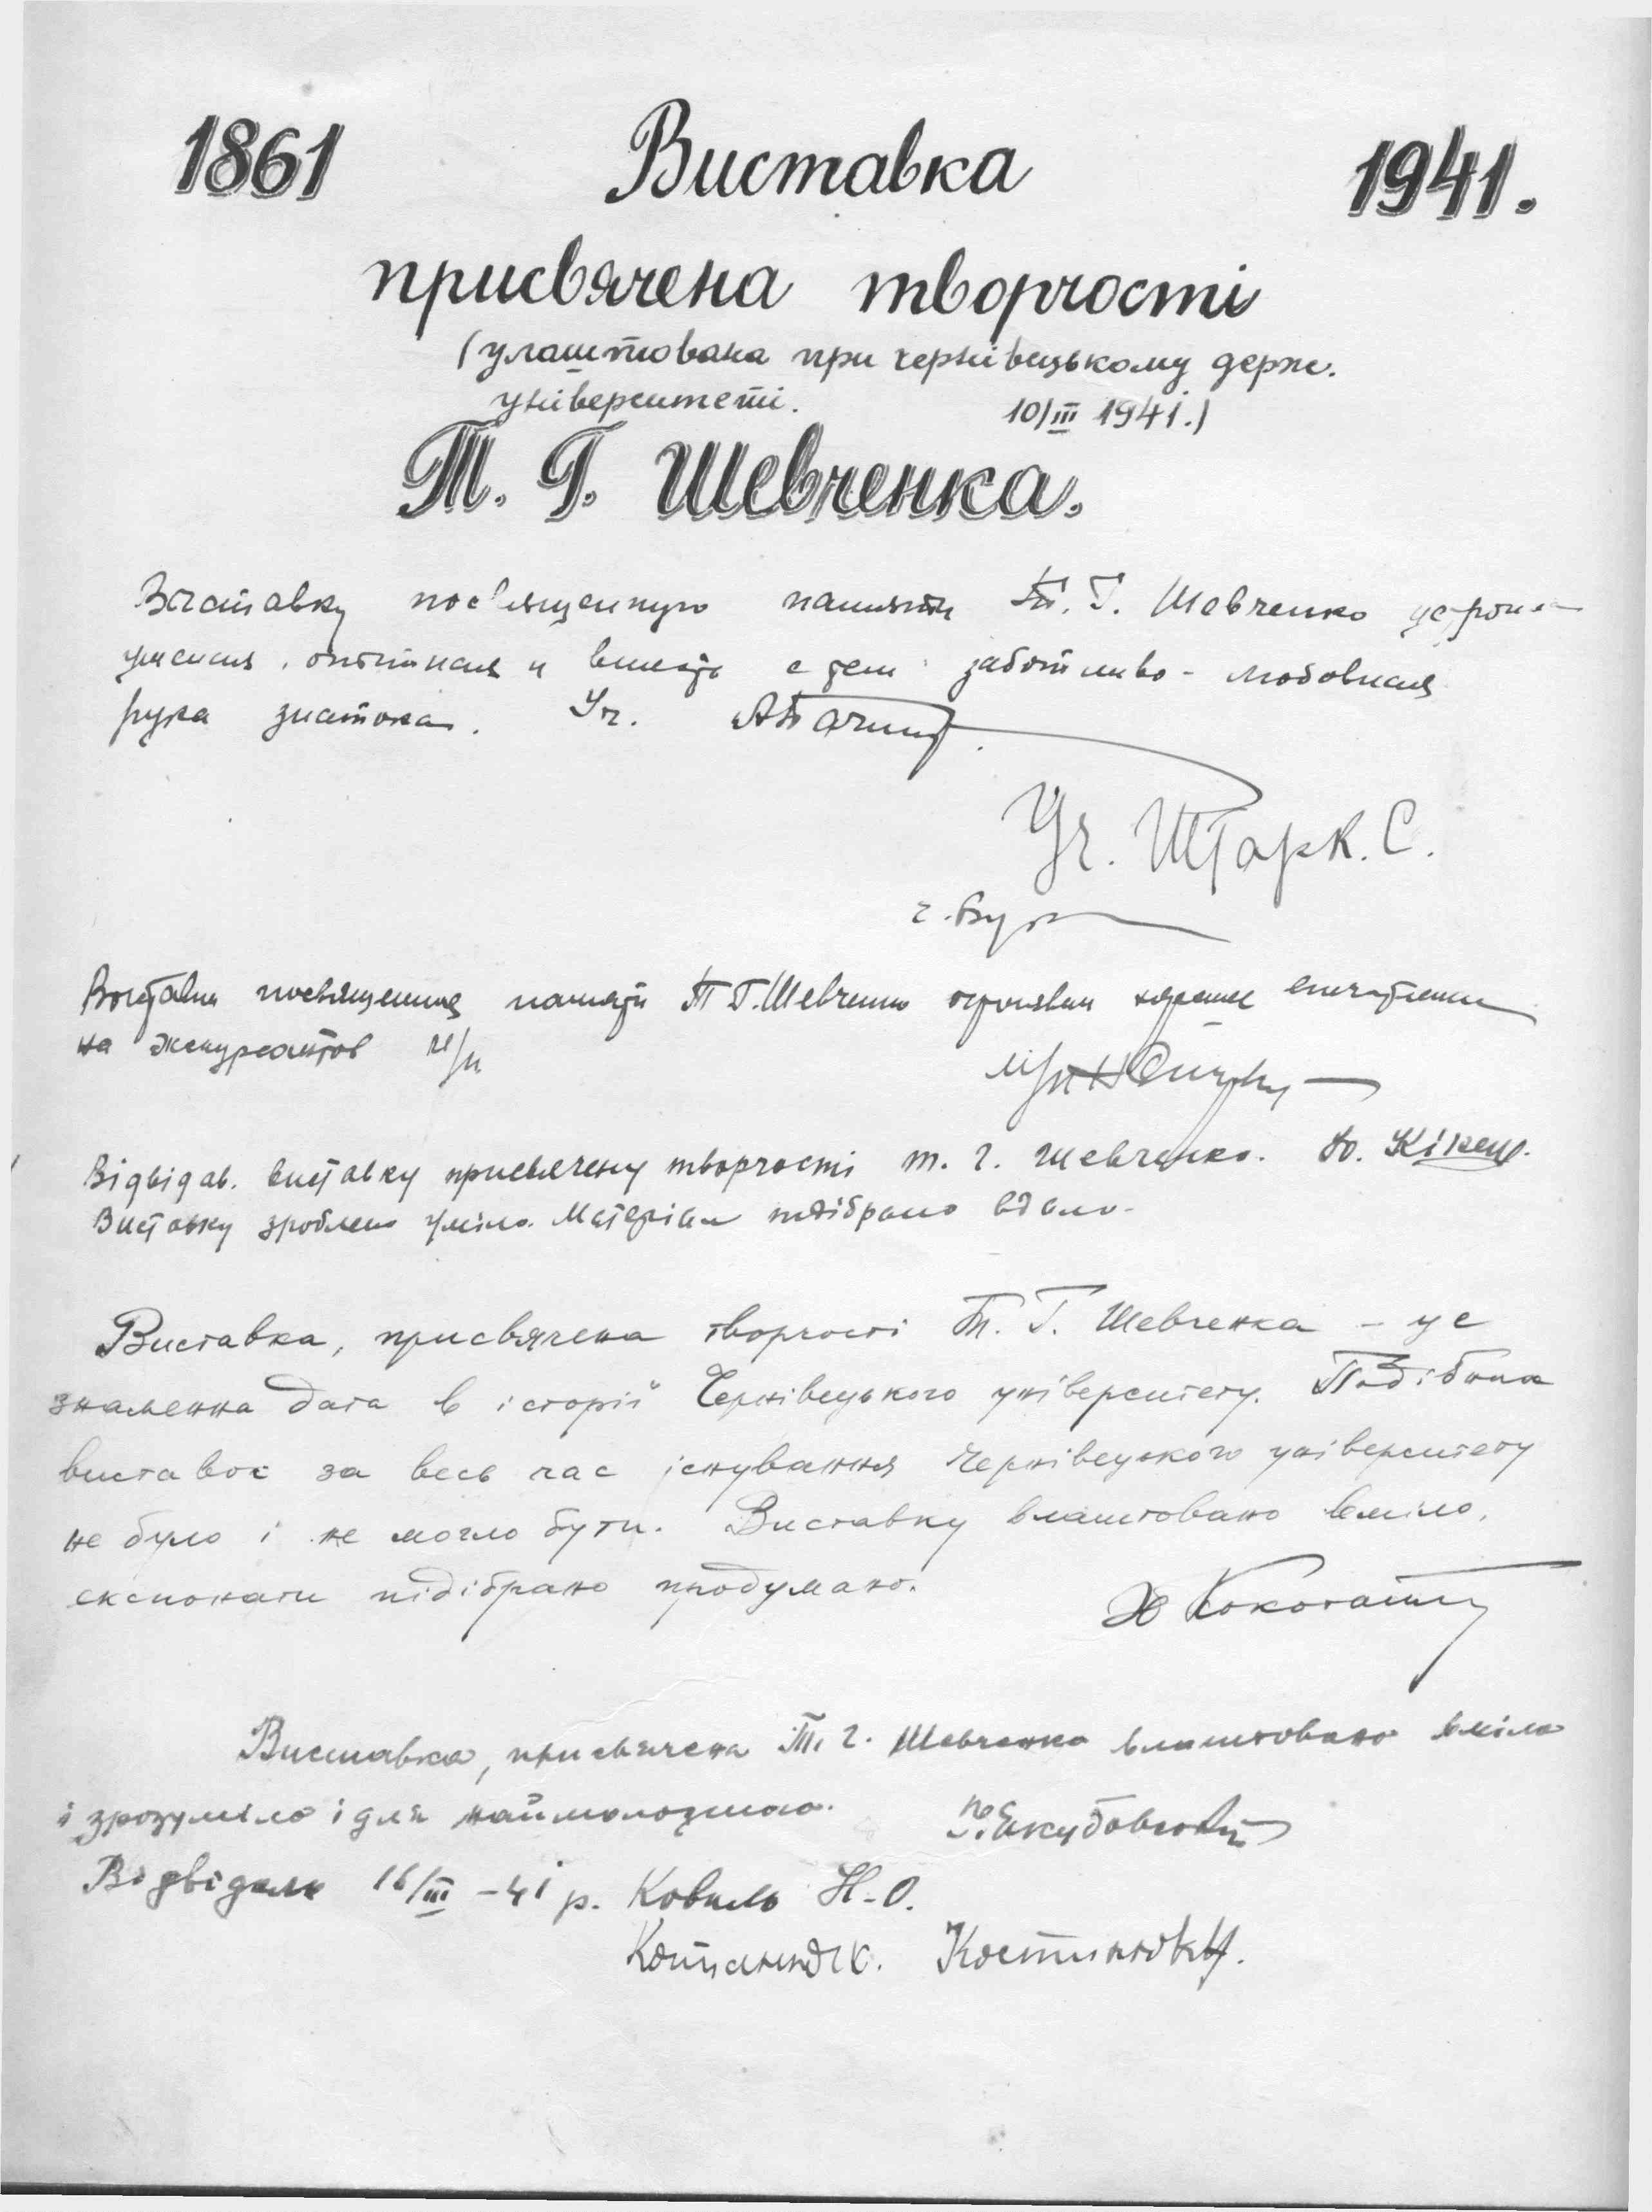 1861 Виставка 1941.
присвячена творчості
(улаштована при Чернівецькому держ.
університеті. 10/III 1941.)
Т. Г. Шевченка.
Выставку посвященную памяти Т. Г. Шевченко устроила
умелая, опытная и вместе с тем заботливо-любовная
рука знатока. Уч.
Уч. Штарк. С.
Выставка посвященная памяти Т Г. Шевченко хорошее впечатление
на экскурсантов
Відвідав. виставку присвячену творчості Т. Г. Шевченко. Ю.
Виставку зроблено уміло. Матеріал підібрано вдало.
Виставка, присвячена творчості Т. Г. Шевченка – це
знаменна дата в історії Чернівецького університету. Подібних
виставок за весь час існування Чернівецького університету
не було і не могло бути. Виставку влаштовано вміло,
експонати підібрано продумано.
Виставка, присвячена Т. Г. Шевченка влаштовано вміло
і зрозуміло і для наймолодшого.
Відвідали 16/III – 41 р. Коваль Н. О.
Костинюк Н.